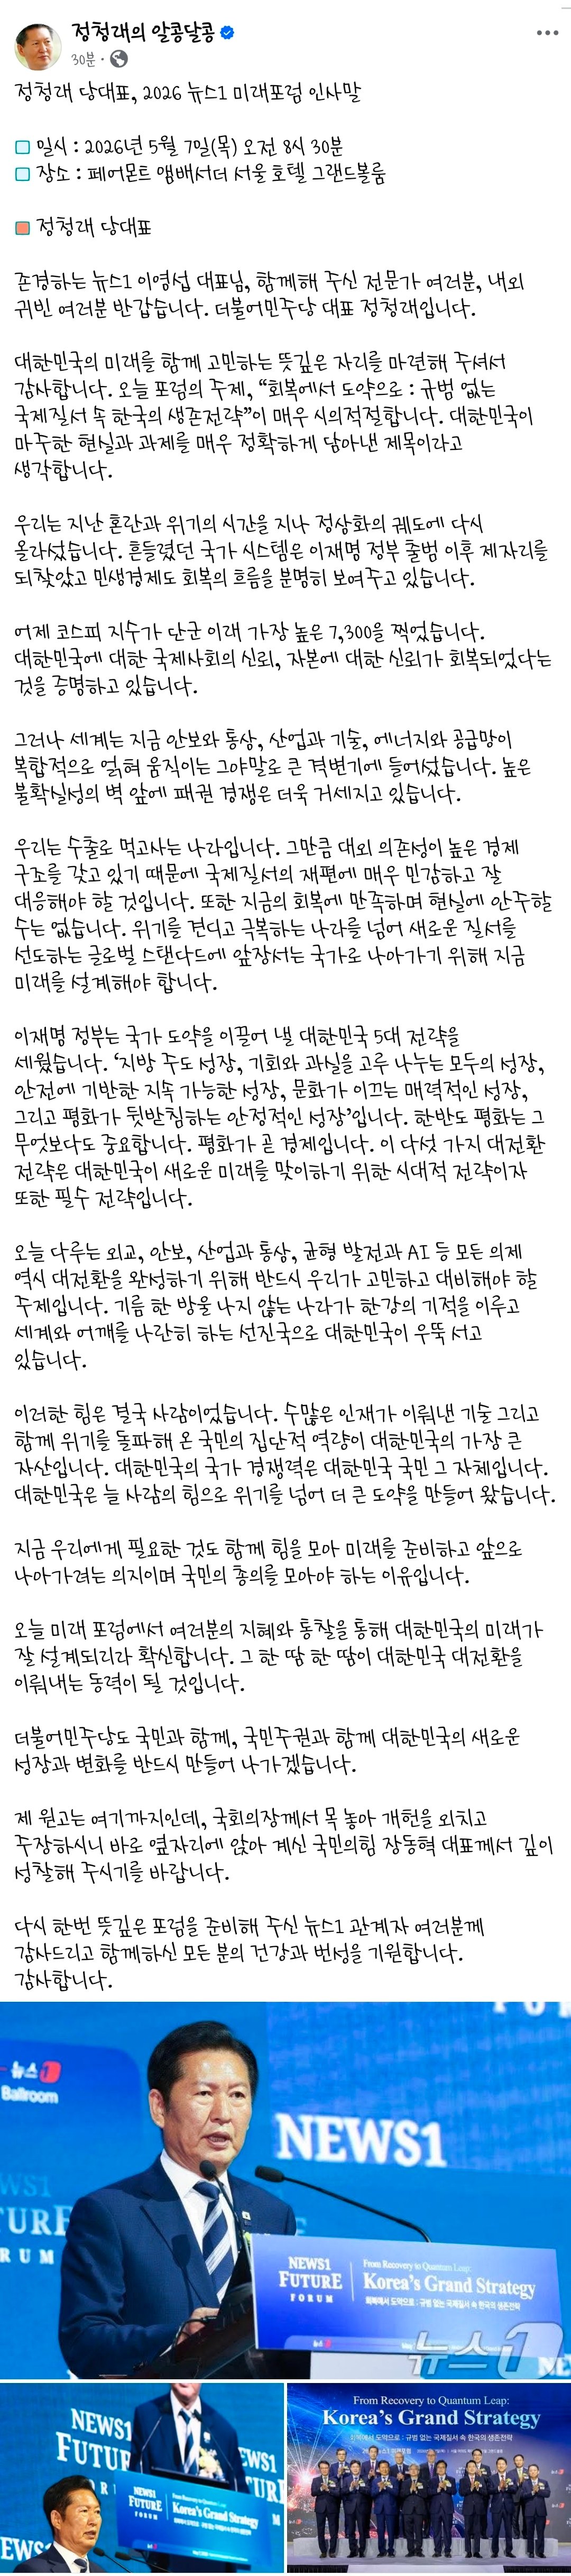 정청래의 알콩달콩
30분
정청래 당대표, 2026 뉴스1 미래포럼 인사말
일시 : 2026년 5월 7일(목) 오전 8시 30분
장소 : 페어몬트 앰배서더 서울 호텔 그랜드볼룸
정청래 당대표
존경하는 뉴스1 이영섭 대표님, 함께해 주신 전문가 여러분, 내외
귀빈 여러분 반갑습니다. 더불어민주당 대표 정청래입니다.
대한민국의 미래를 함께 고민하는 뜻깊은 자리를 마련해 주셔서
감사합니다. 오늘 포럼의 주제, “회복에서 도약으로 : 규범 없는
국제질서 속 한국의 생존전략”이 매우 시의적절합니다. 대한민국이
마주한 현실과 과제를 매우 정확하게 담아낸 제목이라고
생각합니다.
우리는 지난 혼란과 위기의 시간을 지나 정상화의 궤도에 다시
올라섰습니다. 흔들렸던 국가 시스템은 이재명 정부 출범 이후 제자리를
되찾았고 민생경제도 회복의 흐름을 분명히 보여주고 있습니다.
어제 코스피 지수가 단군 이래 가장 높은 7,300을 찍었습니다.
대한민국에 대한 국제사회의 신뢰, 자본에 대한 신뢰가 회복되었다는
것을 증명하고 있습니다.
그러나 세계는 지금 안보와 통상, 산업과 기술, 에너지와 공급망이
복합적으로 얽혀 움직이는 그야말로 큰 격변기에 들어섰습니다. 높은
불확실성의 벽 앞에 패권 경쟁은 더욱 거세지고 있습니다.
우리는 수출로 먹고사는 나라입니다. 그만큼 대외 의존성이 높은 경제
구조를 갖고 있기 때문에 국제질서의 재편에 매우 민감하고 잘
대응해야 할 것입니다. 또한 지금의 회복에 만족하며 현실에 안주할
수는 없습니다. 위기를 견디고 극복하는 나라를 넘어 새로운 질서를
선도하는 글로벌 스탠다드에 앞장서는 국가로 나아가기 위해 지금
미래를 설계해야 합니다.
이재명 정부는 국가 도약을 이끌어 낼 대한민국 5대 전략을
세웠습니다. ‘지방 주도 성장, 기회와 과실을 고루 나누는 모두의 성장,
안전에 기반한 지속 가능한 성장, 문화가 이끄는 매력적인 성장,
그리고 평화가 뒷받침하는 안정적인 성장’입니다. 한반도 평화는 그
무엇보다도 중요합니다. 평화가 곧 경제입니다. 이 다섯 가지 대전환
전략은 대한민국이 새로운 미래를 맞이하기 위한 시대적 전략이자
또한 필수 전략입니다.
오늘 다루는 외교, 안보, 산업과 통상, 균형 발전과 AI 등 모든 의제
역시 대전환을 완성하기 위해 반드시 우리가 고민하고 대비해야 할
주제입니다. 기름 한 방울 나지 않는 나라가 한강의 기적을 이루고
세계와 어깨를 나란히 하는 선진국으로 대한민국이 우뚝 서고
있습니다.
이러한 힘은 결국 사람이었습니다. 수많은 인재가 이뤄낸 기술 그리고
함께 위기를 돌파해 온 국민의 집단적 역량이 대한민국의 가장 큰
자산입니다. 대한민국의 국가 경쟁력은 대한민국 국민 그 자체입니다.
대한민국은 늘 사람의 힘으로 위기를 넘어 더 큰 도약을 만들어 왔습니다.
지금 우리에게 필요한 것도 함께 힘을 모아 미래를 준비하고 앞으로
나아가려는 의지이며 국민의 총의를 모아야 하는 이유입니다.
오늘 미래 포럼에서 여러분의 지혜와 통찰을 통해 대한민국의 미래가
잘 설계되리라 확신합니다. 그 한 땀 한 땀이 대한민국 대전환을
이뤄내는 동력이 될 것입니다.
더불어민주당도 국민과 함께, 국민주권과 함께 대한민국의 새로운
성장과 변화를 반드시 만들어 나가겠습니다.
제 원고는 여기까지인데, 국회의장께서 목 놓아 개헌을 외치고
주장하시니 바로 옆자리에 앉아 계신 국민의힘 장동혁 대표께서 깊이
성찰해 주시기를 바랍니다.
다시 한번 뜻깊은 포럼을 준비해 주신 뉴스1 관계자 여러분께
감사드리고 함께하신 모든 분의 건강과 번성을 기원합니다.
감사합니다.
뉴스1
Ballroom
NEWS1
NEWS1
FUTURE
FORUM
From Recovery to Quantum Leap:
Korea's Grand Strategy
회복에서 도약으로 : 규범 없는 국제질서 속 한국의 생존전략
뉴스1
NEWS1
FUTURE
NEWS1
FUTURE
FORUM
Korea's Grand Strategy
From Recovery to Quantum Leap:
Korea's Grand Strategy
회복에서 도약으로 : 규범 없는 국제질서 속 한국의 생존전략